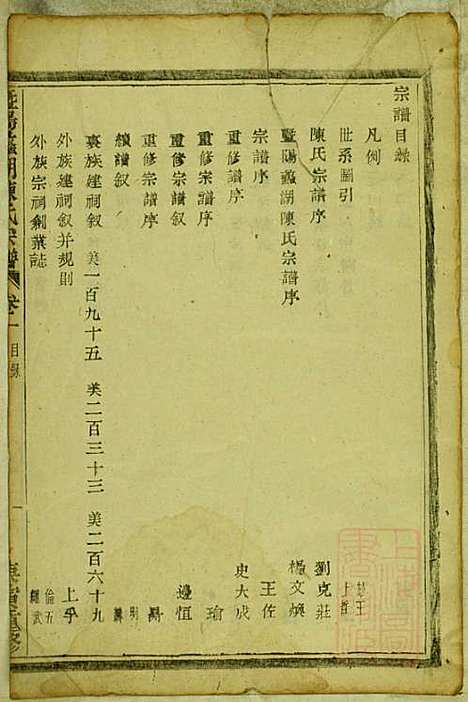 宗譜目録
凡例
世系圖引
陳氏宗譜序 劉克莊
暨陽蠡湖陳氏宗譜序 楊文煥
宗譜序 王佐
重修譜序 史大成
重修譜叙 瑜
重修宗譜叙 邊恒
重修宗譜序
續譜叙 明
裏族建祠叙 美一百九十五 美二百三十三 美二百六十九 上孚
外族建祠叙并規則 倫五
外族宗祠創業誌
湖陳氏宗譜 卷一 目録 一